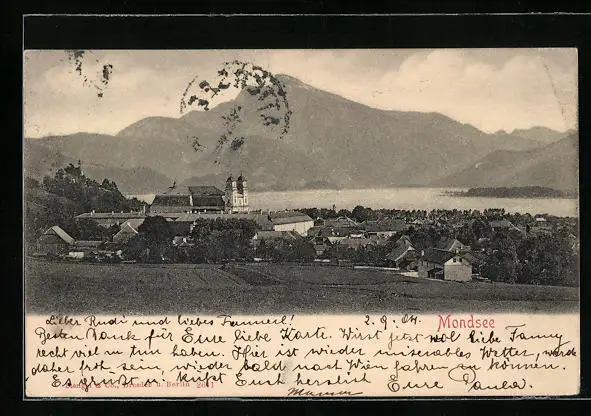 Mondsee
Lieber Rudi und liebes Fannerl! 2. 9. 04.
Besten Dank für Eure liebe Karte. Wirst jetzt wol liebe Fanny
recht viel zu tun haben. Hier ist wieder miserables Wetter, werde
daher froh sein, wieder bald nach Wien fahren zu können.
Es grüßt u. küßt Euch herzlich Eure
& Co., Dresden u. Berlin